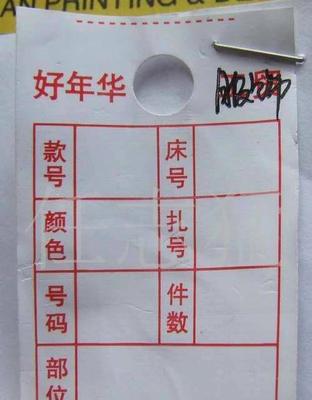 AN PRINTING & D
好年华 服饰
款号 床号
颜色 扎号
号码 件数
部位